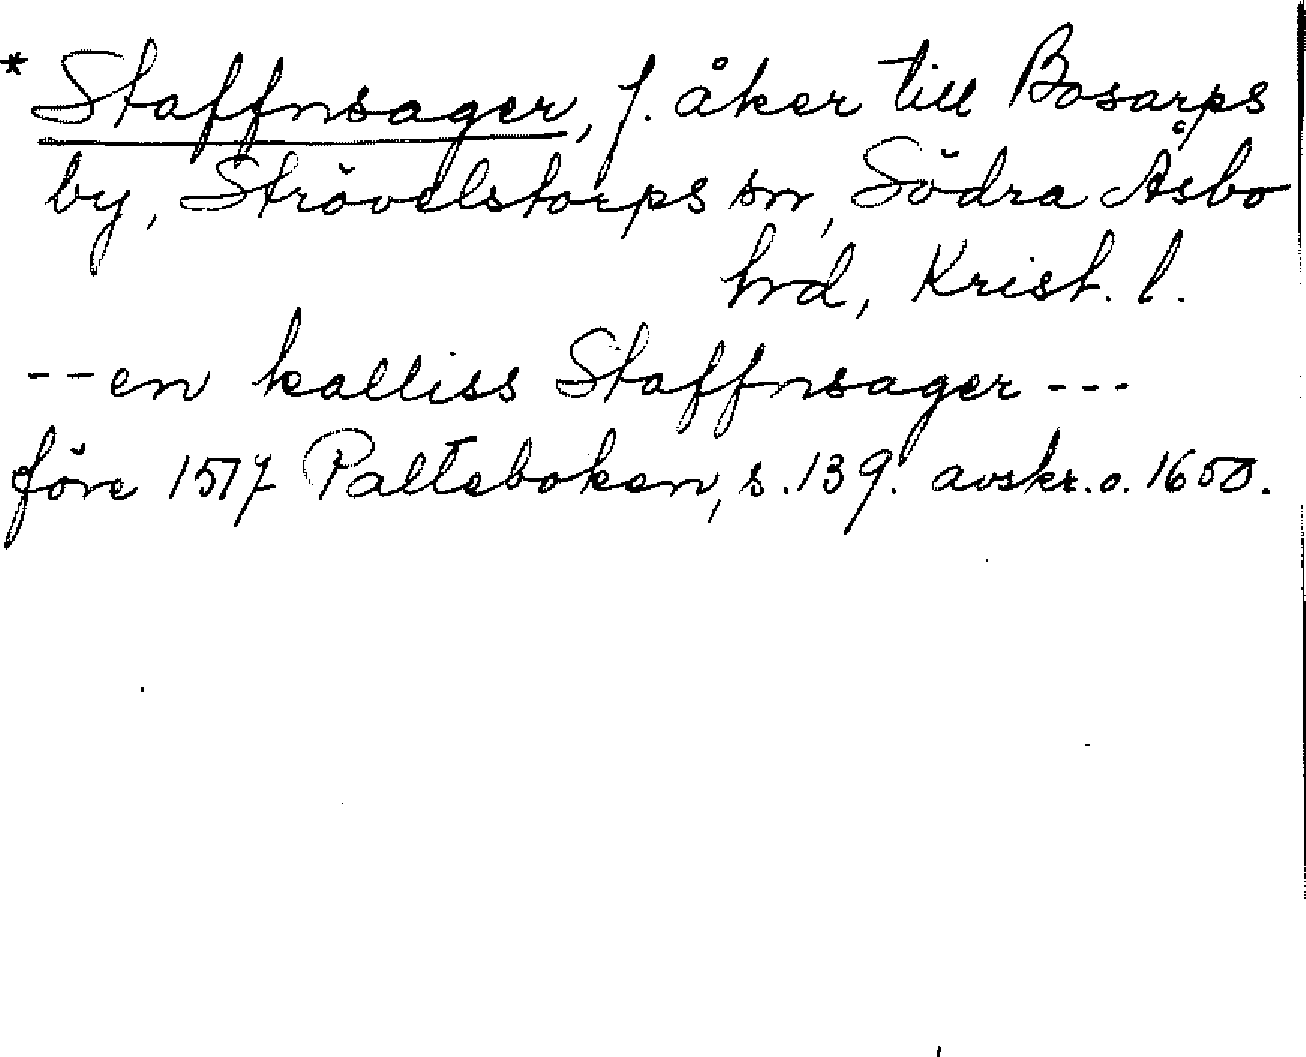 * Staffnsager, f. åker till Bosarps
by, Strövelstorps sn, Södra Åsbo
hrd, Krist. l.
-- en kalliss Staffnsager ---
före 1517 Palteboken, s. 139. avskr. o. 1650.